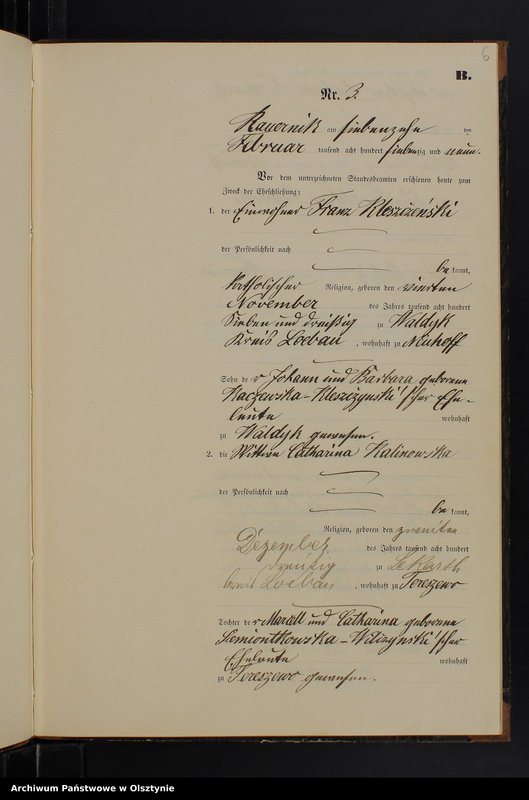 6
B.
Nr. 3.
Kauernik am siebenzehn ten
Februar tausend acht hundert siebenzig und neun.
Vor dem unterzeichneten Standesbeamten erschienen heute zum
Zweck der Eheschließung:
1. der Einwohner Franz Kleszczeński
der Persönlichkeit nach
be kannt,
katholischer Religion, geboren den vierten
November des Jahres tausend acht hundert
sieben und dreißig zu Waldyk
Kreis Loebau, wohnhaft zu Neuhoff
Sohn der Johann und Barbara geborene
Kaczewska-Kleszczynski'scher Ehe-
leute wohnhaft
zu Waldyk gewesen.
2. die Wittwe Catharina Kalinowska
der Persönlichkeit nach
be kannt,
Religion, geboren den zweiten
Dezember des Jahres tausend acht hundert
dreißig zu Lekarth
Kreis Loebau, wohnhaft zu Tereszewo
Tochter der und Catharina geborene
Siemiontkowska-Wilczynski'scher
Eheleute wohnhaft
zu Tereszewo gewesen.
Archiwum Państwowe w Olsztynie